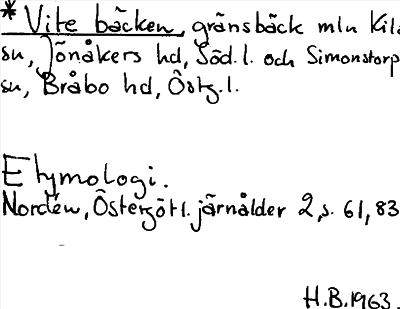 * Vite bäcken, gränsbäck mln Kila
sn, Jönåkers hd, Söd.l. och Simonstorp
sn, Bråbo hd, Östg.l.
Etymologi.
Nordén, Östergötl. järnålder 2, s. 61, 83
H.B. 1963.